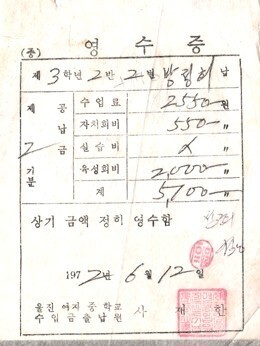 (중) 영수증
제 3 학년 2 반 2 번 방정희 납
제 2 기분 공납금
수업료 2550 원
자치회비 550 〃
실습비 X 〃
육성회비 2,000 〃
계 5,100 〃
상기 금액 정히 영수함
1972년 6월 12일
울진 여자 중학교
수입금출납원 사 재 한